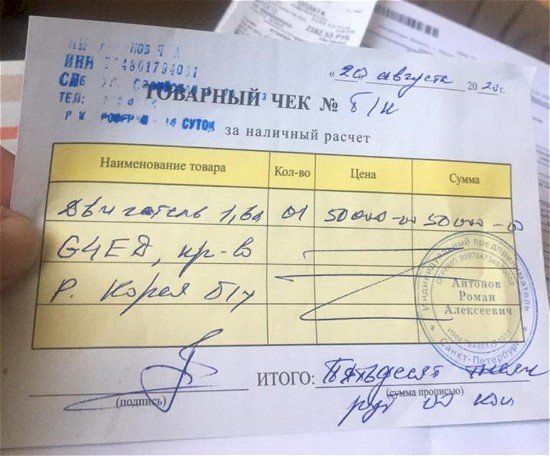 2162.52 РУБ
ИНН
СПб
ТЕЛ:
СУТОК
« 20 » августа 20 20 г.
ТОВАРНЫЙ ЧЕК № б/н
за наличный расчет
Наименование товара Кол-во Цена Сумма
Двигатель 1,6л 01 50000-00 50000-00
G4ED, пр-во
Р. Корея б/у
Индивидуальный предприниматель
Антонов
Роман
Алексеевич
Санкт-Петербург
ИТОГО: Пятьдесят тысяч
(подпись) (сумма прописью)
руб 00 коп